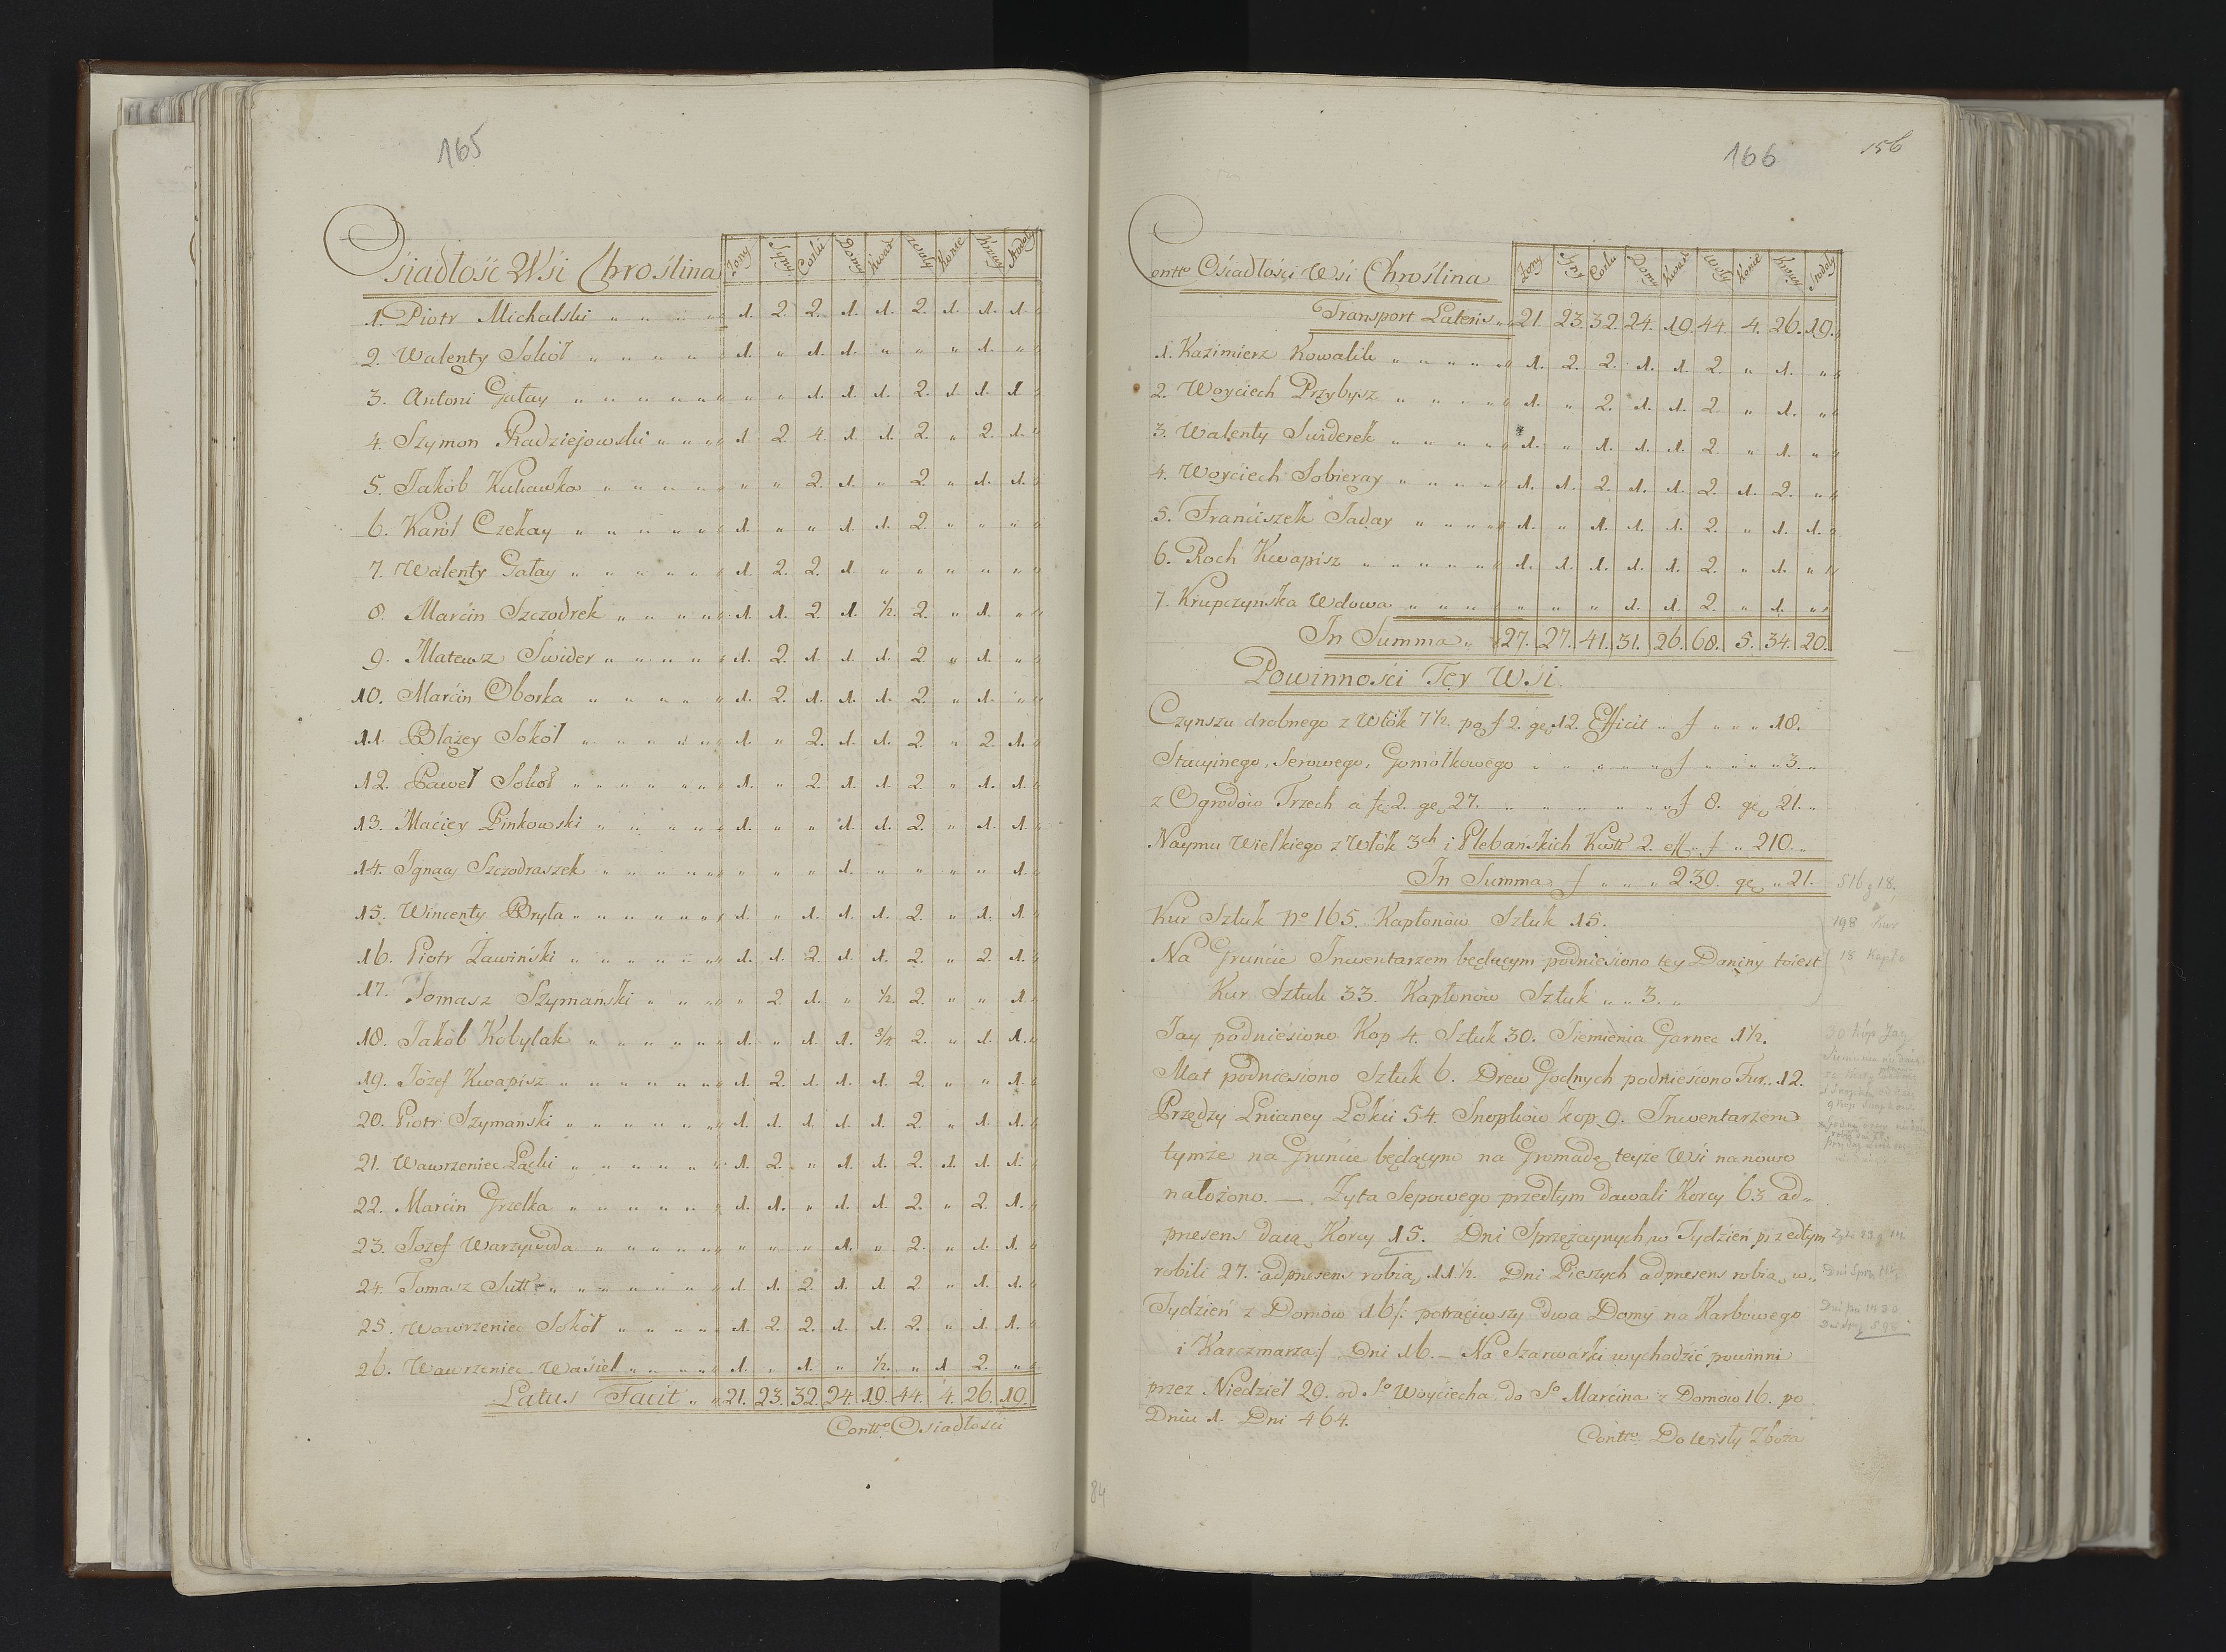 165
Osiadłość Wśi Chroślina Zony Syny Corki Domy Kwart Woły Konie Krowy Stodoły
1. Piotr Michalski „ „ „ „ 1. 2. 2. 1. 1. 2. 1. 1. 1.
2. Walenty Sokół „ „ „ „ 1. „ 1. 1. „ „ „ 1. „
3. Antoni Gałay „ „ „ „ „ „ 1. 1. 1. 2. 1. 1. 1
4. Szymon Radziejowski „ „ „ 1 2. 4. 1. 1. 2. „ 2. 1.
5. Jakób Kukawka „ „ „ „ „ „ 2. 1. „ 2. „ 1. 1.
6. Karol Czekay „ „ „ „ 1. „ „ 1. 1. 2. „ „ „
7. Walenty Gałay „ „ „ „ 1. 2. 2. 1. „ „ „ „ „
8. Marcin Szczodrek „ „ „ „ 1. 1. 2. 1. ½. 2. „ 1. „
9. Matewz Świder „ „ „ „ 1. 2. 1. 1. 1. 2. „ 1. „
10. Marcin Oborka „ „ „ „ 1. 2. 1. 1. 1. 2. „ 1. „
11. Błażey Sokół „ „ „ „ 1. „ 2. 1. 1. 2. „ 2. 1.
12. Paweł Sokoł „ „ „ „ 1. „ 2. 1. 1. 2. „ 1. 1.
13. Maciey Pinkowski „ „ „ „ 1. „ „ 1. 1. 2. „ 1. 1.
14. Ignacy Szczodraszek „ „ „ „ „ „ „ 1. „ „ „ „ 1.
15. Wincenty Bryła „ „ „ „ 1. „ 1. 1. 1. 2. „ 1. 1.
16. Piotr Zawiński „ „ „ „ 1. 1. 2. 1. 1. 2. „ 2. 1.
17. Tomasz Szymański „ „ „ „ 2. 1. „ ½ 2. „ „ 1.
18. Jakób Kobylak „ „ „ „ 1. „ 1. 1. ¾. 2. „ 1. 1.
19. Józef Kwapisz „ „ „ „ 1. 2. 1. 1. 1. 2. „ „ 1.
20. Piotr Szymański „ „ „ „ 1. 1. 1. 1. 1. 2. „ 1. 1.
21. Wawrzeniec Łącki „ „ „ „ 1. 2. „ 1. 1. 2. 1. 1. 1.
22. Marcin Grzelka „ „ „ „ 1. 1. „ 1. 1. 2. „ 2. 1.
23. Jozef Warzywoda „ „ „ „ „ „ „ 1. „ 2. „ 1. 1.
24. Tomasz „ „ „ „ 1. 1. 2. 1. 1. 2. „ 1. 1.
25. Wawrzeniec Sokół „ „ „ „ 1. 2. 2. 1. 1. 2. „ 1. 1.
26. Wawrzeniec Wasiel „ „ „ „ 1. „ 1. „ ½. „ 1 2. „
Latus Facit „ 21. 23. 32. 24. 19. 44. 4. 26. 19.
Contto Osiadłosci
166 156
Contto Osiadłosci Wśi Chroślina Zony Syny Corki Domy Kwart Woły Konie Krowy Stodoły
Transport Lateris „ 21. 23. 32. 24. 19. 44. 4. 26. 19.
1. Kazimierz Kowalik „ „ „ „ 1. 2. 2. 1. 1. 2. „ 1. „
2. Woyciech Przybysz „ „ „ „ 1. „ 2. 1. 1. 2. „ 1. „
3. Walenty Swiderek „ „ „ „ 1. „ 1. 1. 1. 2. „ 1. „
4. Woyciech Sobieray „ „ „ „ 1. 1. 2. 1. 1. 2. 1. 2. „
5. Franciszek Jaday „ „ „ „ 1. „ 1. 1. 1. 2. „ 1. 1.
6. Roch Kwapisz „ „ „ „ 1. 1. 1. 1. 1. 2. „ 1. „
7. Krupczyńska Wdowa „ „ „ „ „ „ „ 1. 1. 2. „ 1. „
In Summa „ 27. 27. 41. 31. 26. 68. 5. 34. 20.
Powinnosci Tey Wśi
Czynszu drobnego z Włók 7½. po f 2. gę 12. Efficit „ f „ „ „ 18.
Stacyinego, Serowego, Gomółkowego „ „ „ „ „ f „ „ „ „ 3. „
z Ogrodów Trzech a f 2. gę 27. „ „ „ „ „ f 8. gę 21. „
Naymu Wielkiego z Włók 3ch i Plebańskich Kwtt 2. eff „ f „ 210. „
In Summa f „ „ „ 239. gę „ 21. 516 g 18.
Kur Sztuk No 165. Kapłonów Sztuk 15. 198 Kur
Na Gruncie Inwentarzem będącym podniesiono tey Daniny toiest 18 Kapło
Kur Sztuk 33. Kapłonów Sztuk „ „ 3. „
Jay podniésiono Kop 4. Sztuk 30. Siemienia Garnec 1½. 30 Kóp Jay
Mat podniesiono Sztuk 6. Drew Godnych podniesiono Fur „ 12.
Przędzy Lnianey Łokci 54. Snopków kop 9. Inwentarzem
tymże na Gruncie będącym na Gromadę teyże Wśi nanowo
nałożono. — Zyta Sepowego przedtym dawali Korcy 63 ad„
presens daią Korcy 15. Dni Sprzężaynych w Tydzień przedtym
robili 27. adpresens robią 11½. Dni Pieszych adpresens robią w„
Tydzień z Domów 16/: potrąciwszy dwa Domy na Karbowego
i Karczmarza:/ Dni 16. — Na Szarwarki wychodzić powinni
przez Niedziel 29. od So Woyciecha do So Marcina z Domów 16. po
Dniu 1. Dni 464.
Contto Do Wisły Zboża
84